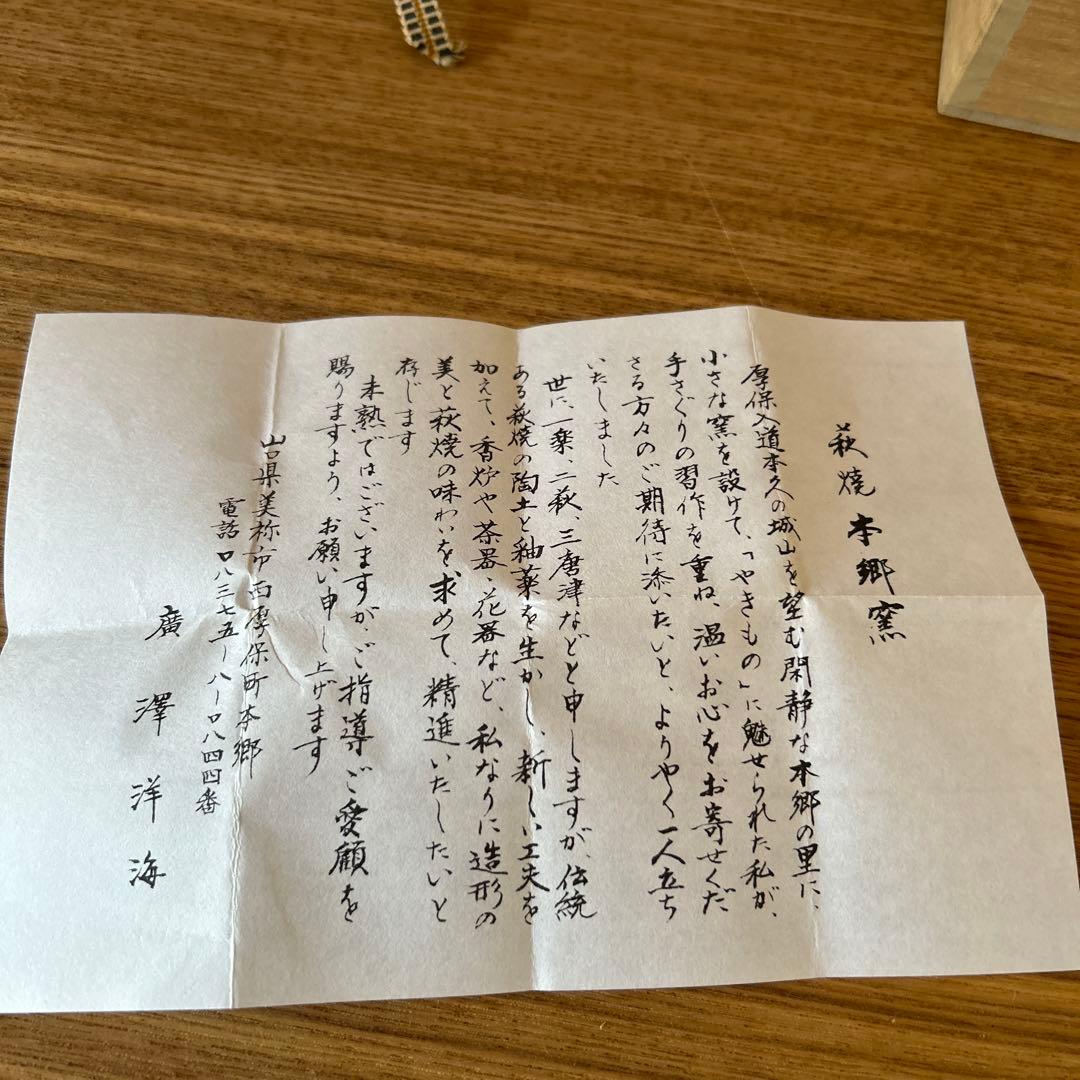 萩焼 本郷窯
厚保入道本久の城山を望む閑静な本郷の里に、
小さな窯を設けて、「やきもの」に魅せられた私が、
手さぐりの習作を重ね、温いお心をお寄せくだ
さる方々のご期待に添いたいと、ようやく一人立ち
いたしました
世に、一楽、二萩、三唐津などと申しますが、伝統
ある萩焼の陶土と釉薬を生かし、新しい工夫を
加えて、香炉や茶器、花器など、私なりに造形の
美と萩焼の味わいを求めて、精進いたしたいと
存じます
未熟ではございますが、ご指導ご愛顧を
賜りますよう、お願い申し上げます
山口県美祢市西厚保町本郷
電話 〇八三七五―八―〇八四四番
廣澤洋海